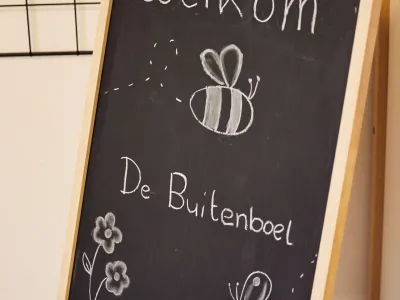 Welkom
De Buitenboel